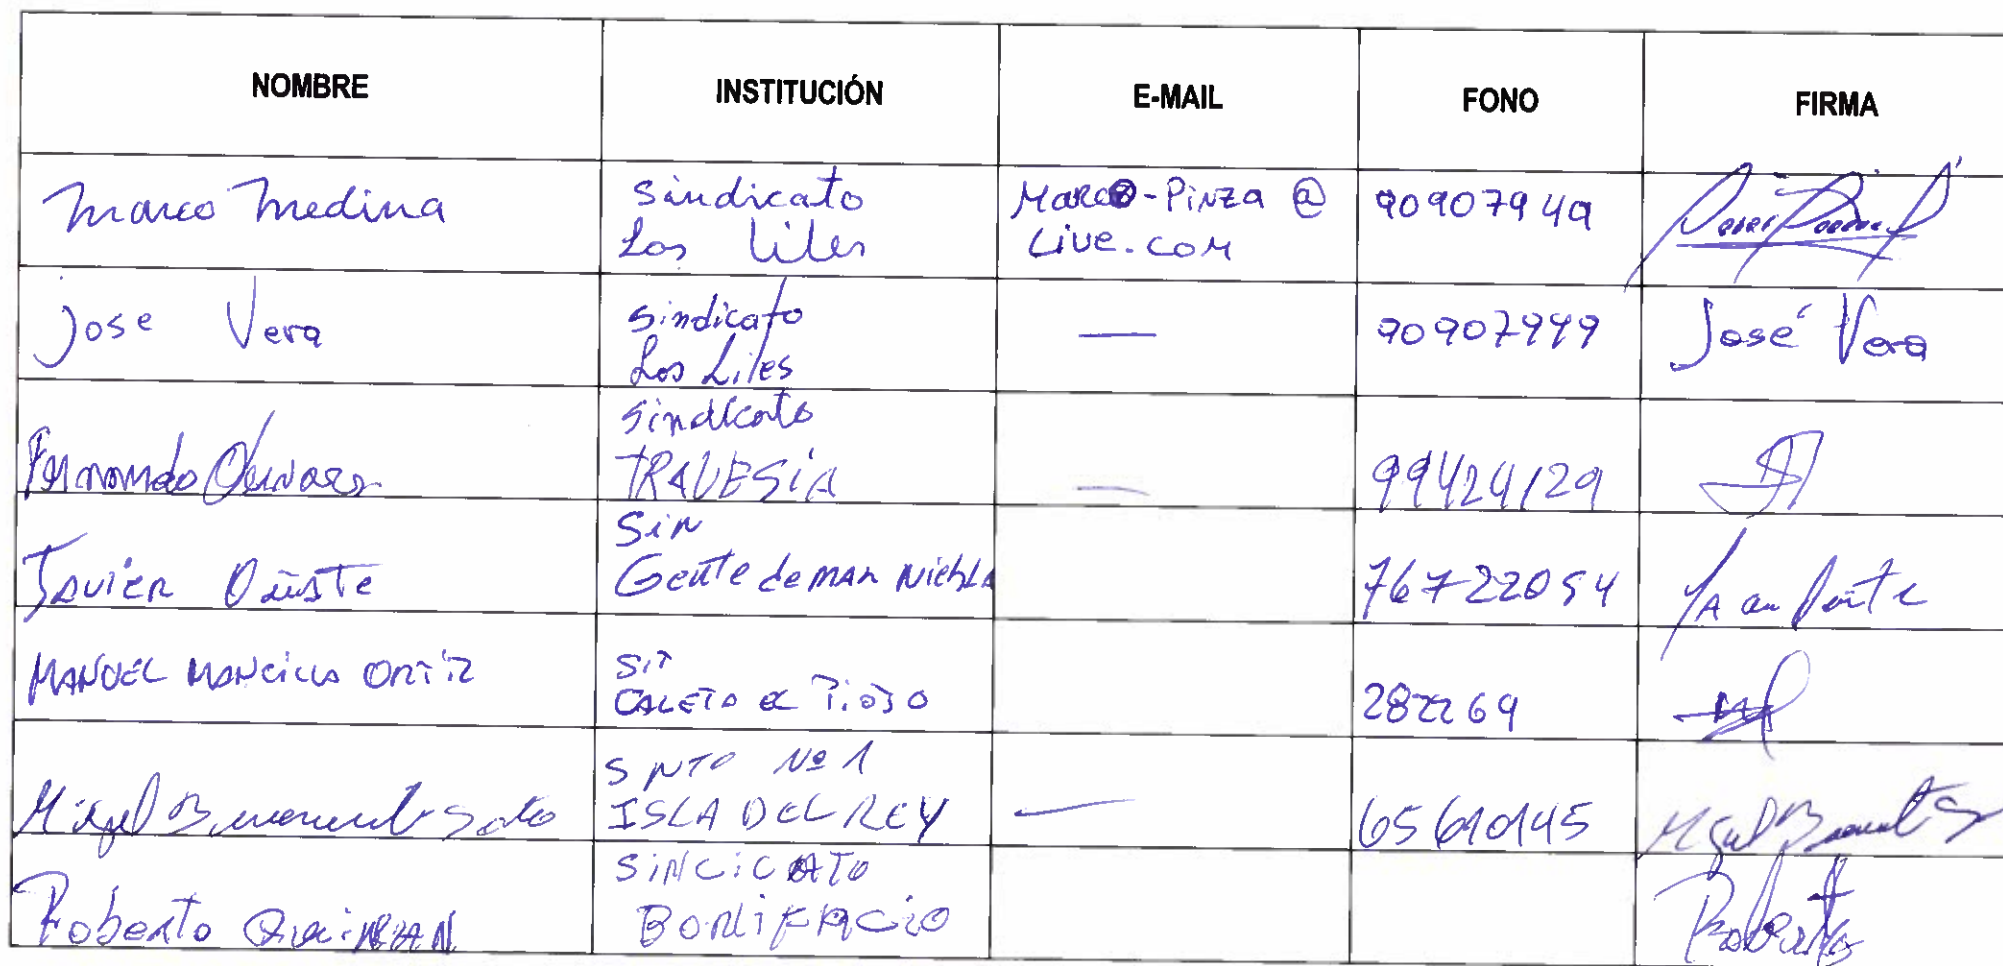 NOMBRE INSTITUCIÓN E-MAIL FONO FIRMA
Marco Medina Sindicato Los Liles Marco-Pinza @ Live.com 90907949
Jose Vera Sindicato Los Liles — 90907949 José Vera
Fernando Sindicato TRAVESÍA — 99424129
Javier Sin Gente de mar Niebla 76722054
MANUEL MANCILLA ORTIZ SIT CALETA EL PIOJO 282269
Miguel Soto SNTO Nº 1 ISLA DEL REY — 65610145
Roberto SINCICATO BONIFACIO Roberto